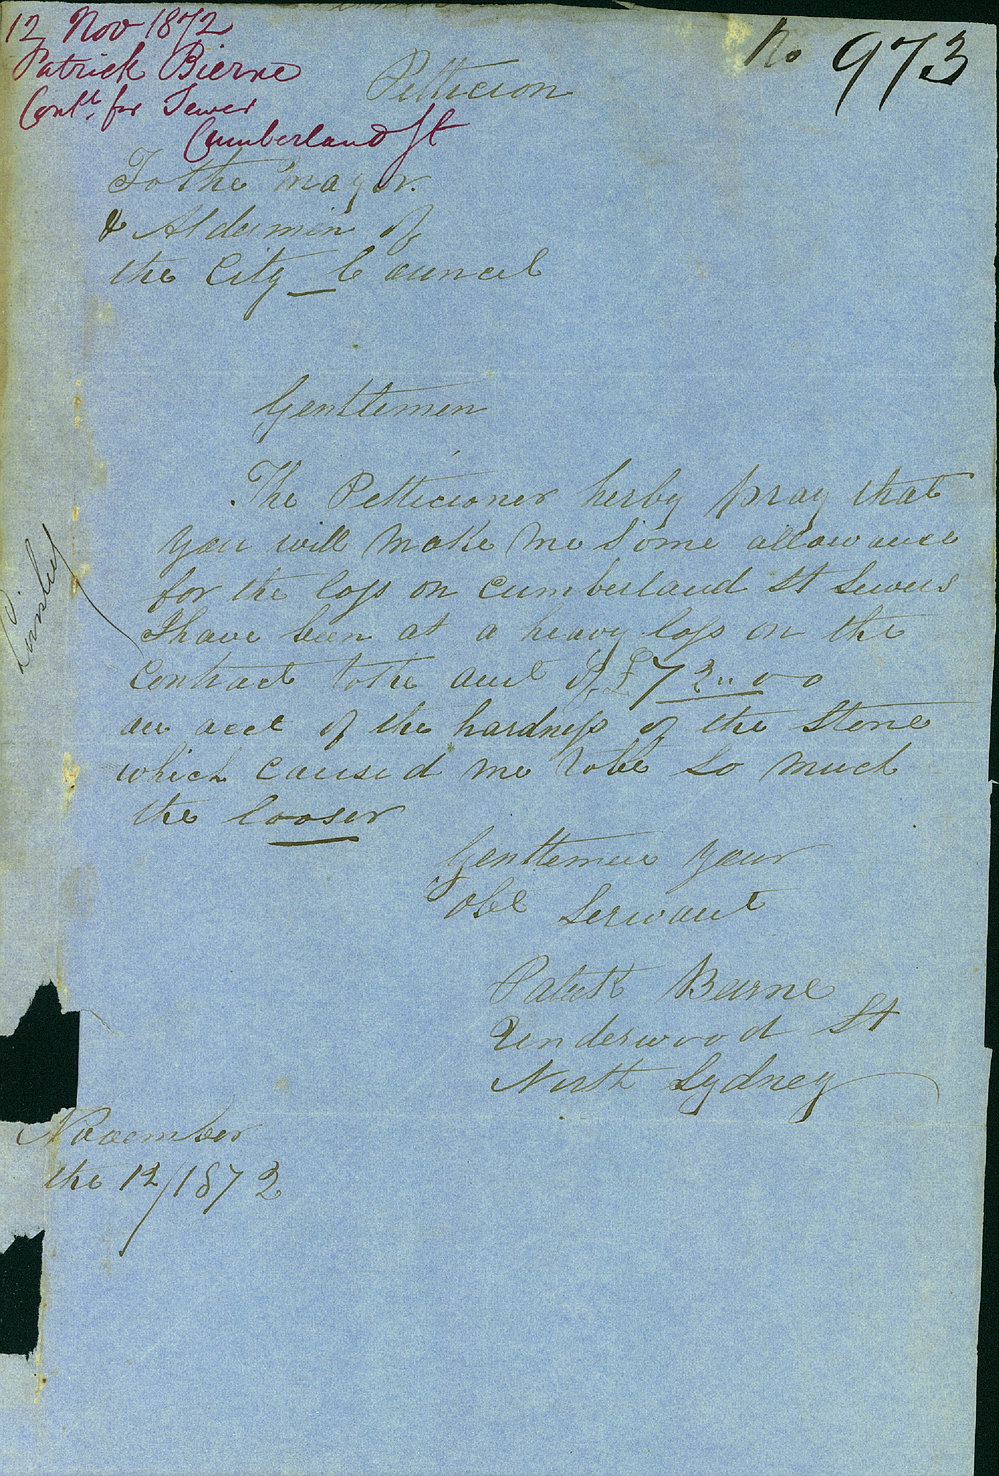 12 Nov 1872
Patrick Bierne
Contr. for Sewer
Cumberland St
No 973
Petticion
To the Mayor.
& Aldermin of
the City Councel
Gentlemen
The Petticioner herby pray that
you will make me Some allowance
for the loss on Cumberland St Sewers
I have been at a heavy loss on the
Contract to the amt of £72..00
on acct of the hardness of the Stone
which caused me to be so much
the looser
Gentlemen your
obt Servant
Patrick Barne
Underwood St
North Sydney
November
the 12/1872